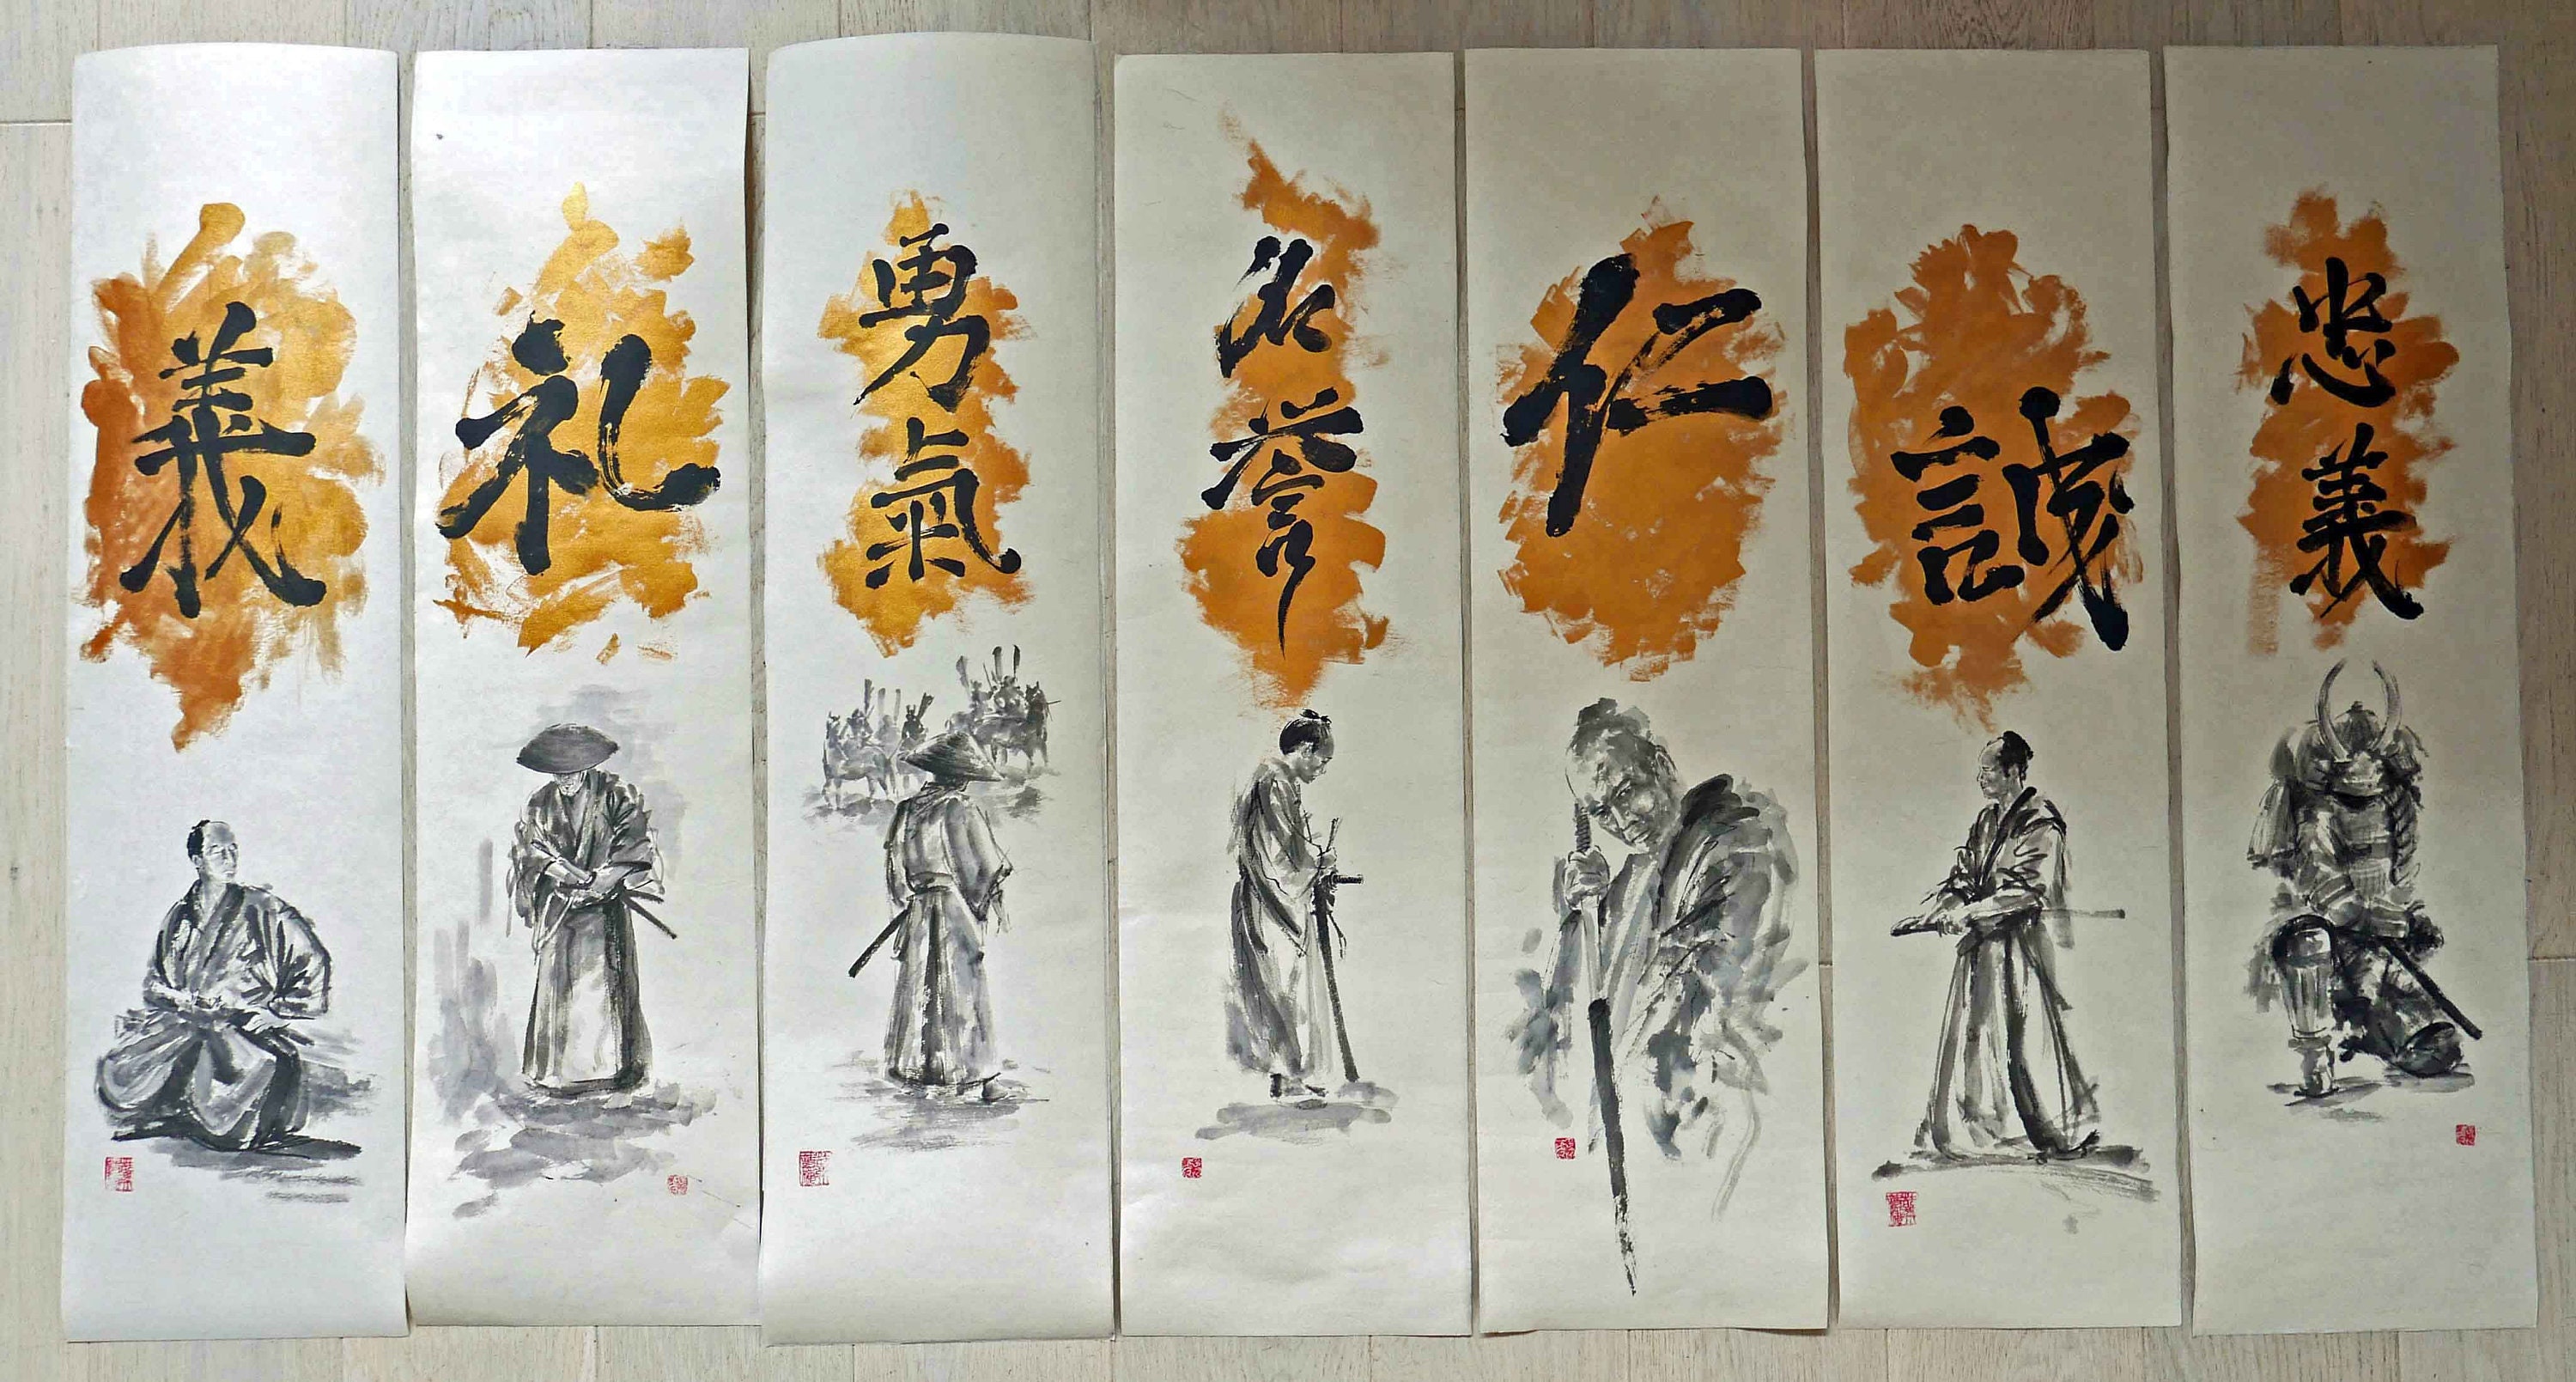 義
礼
勇氣
名誉
仁
誠
忠義